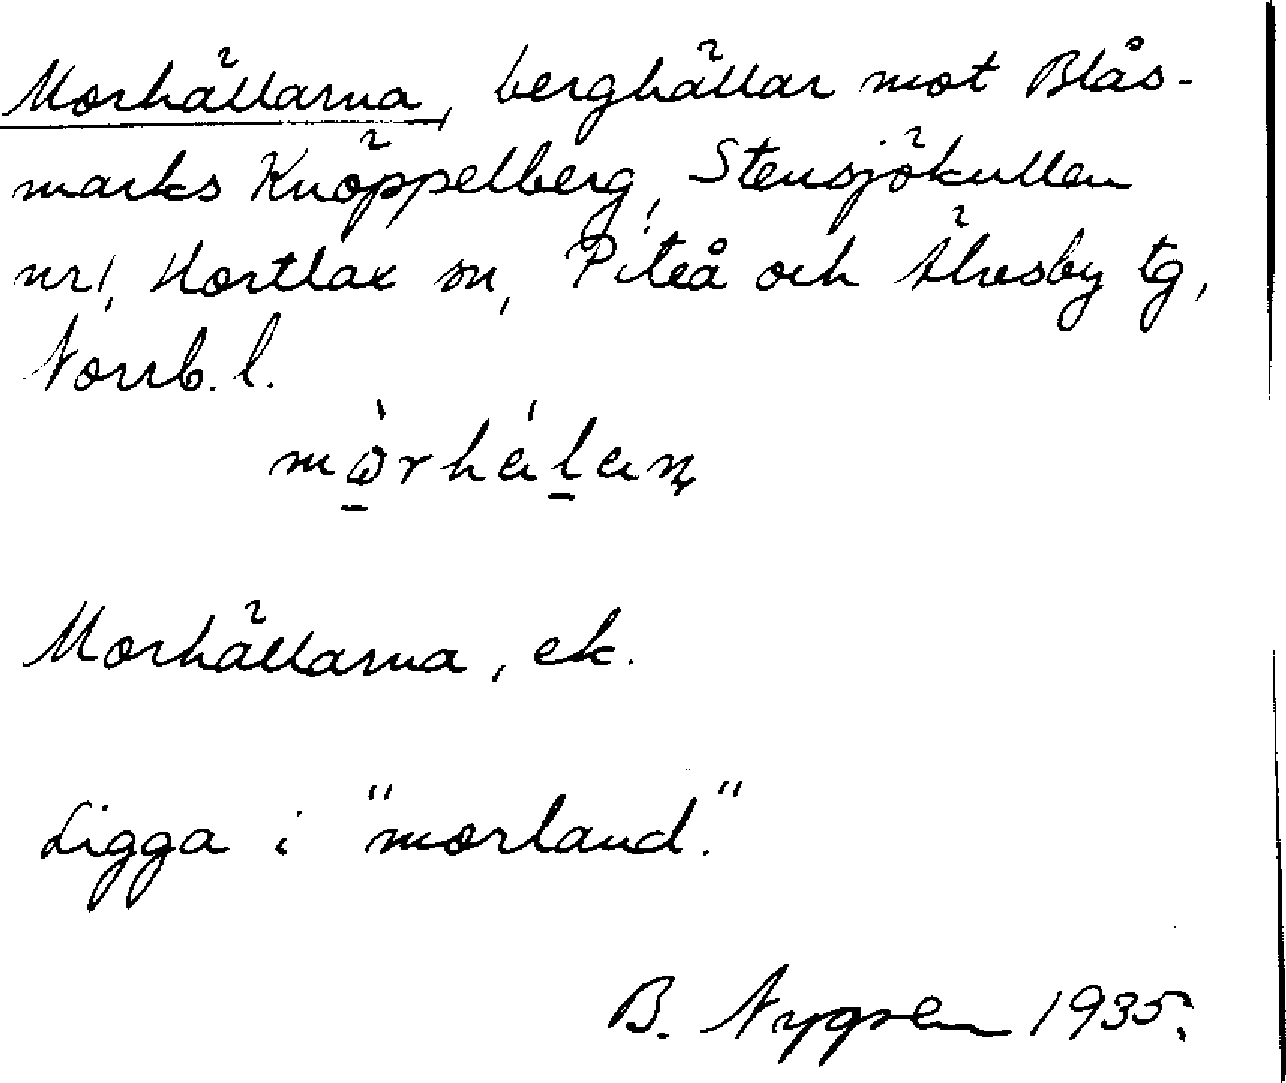 Morhällarna, berghällar mot Blås-
marks Knöppelberg, Stensjökullen
nr 1, Hortlax sn, Piteå och Älvsby tg,
Norrb. l.
Morhällarna, ek.
Ligga i "morland."
B. Nygren 1935.